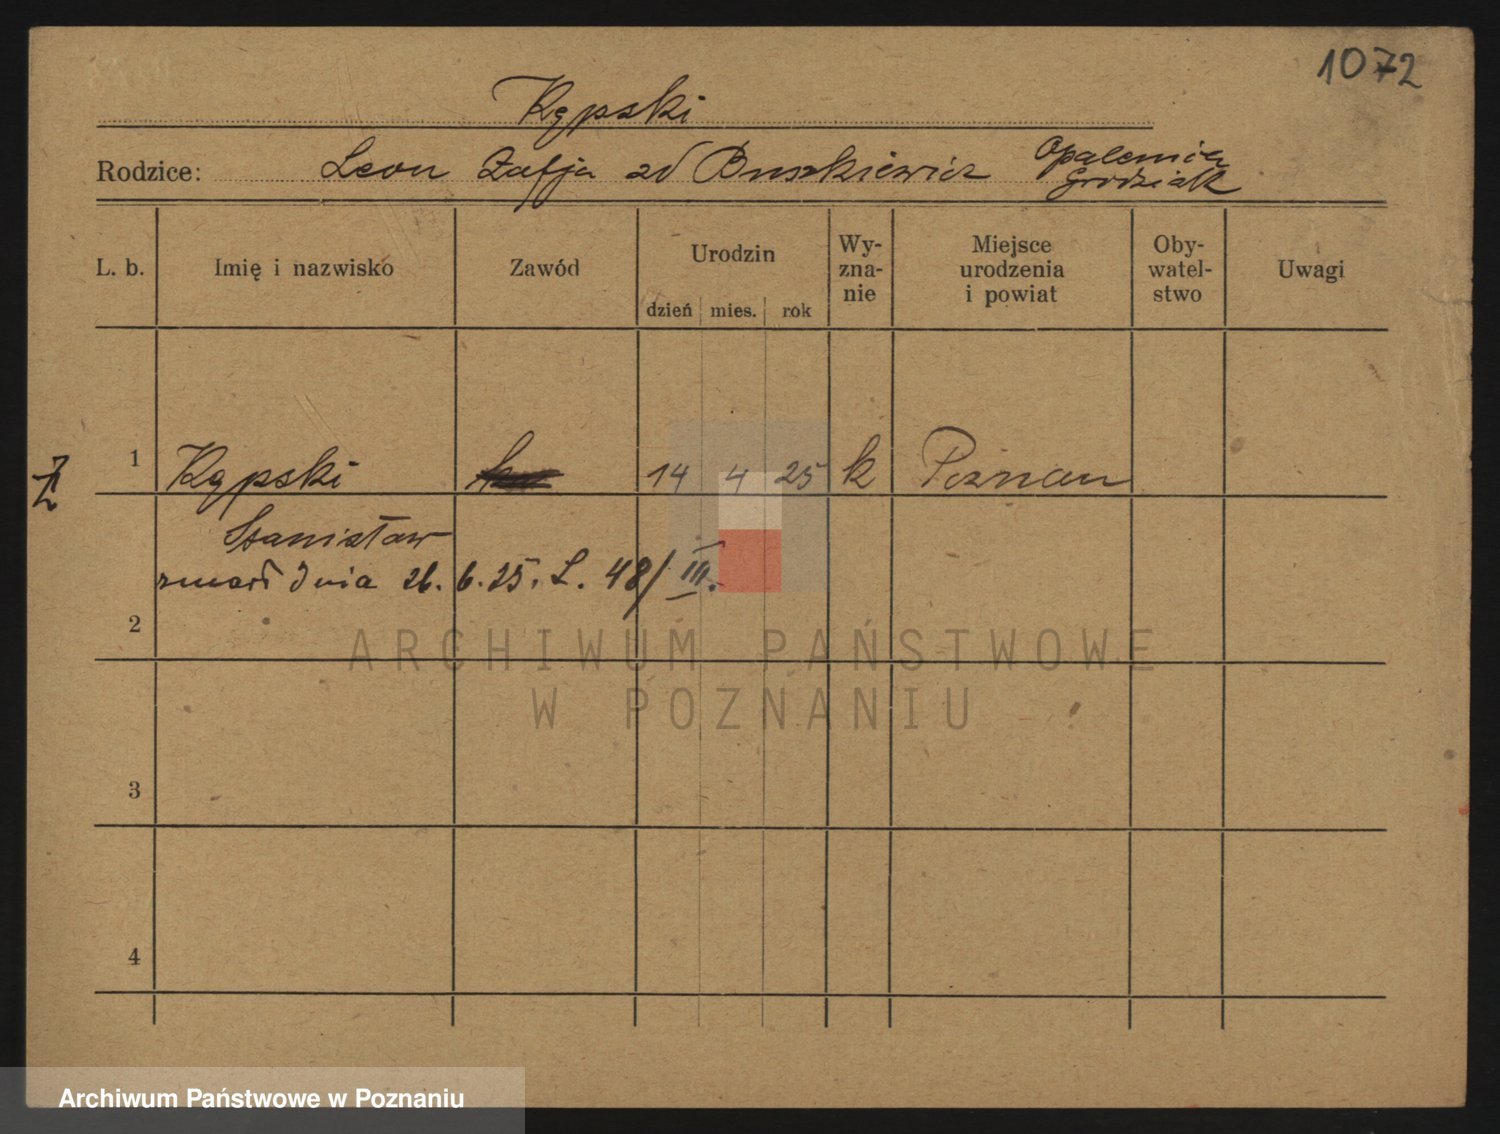 1072
Kępski
Rodzice: Leon Zofja zd Buszkiewicz Opalenica
Grodzisk
L. b. Imię i nazwisko Zawód Urodzin dzień mies. rok Wy-zna-nie Miejsce urodzenia i powiat Oby-watel-stwo Uwagi
1 Kępski 14 4 25 k Poznań
Stanisław
zmarł dnia 26. 6. 25. L. 48/III.
2
ARCHIWUM PAŃSTWOWE
W POZNANIU
3
4
Archiwum Państwowe w Poznaniu